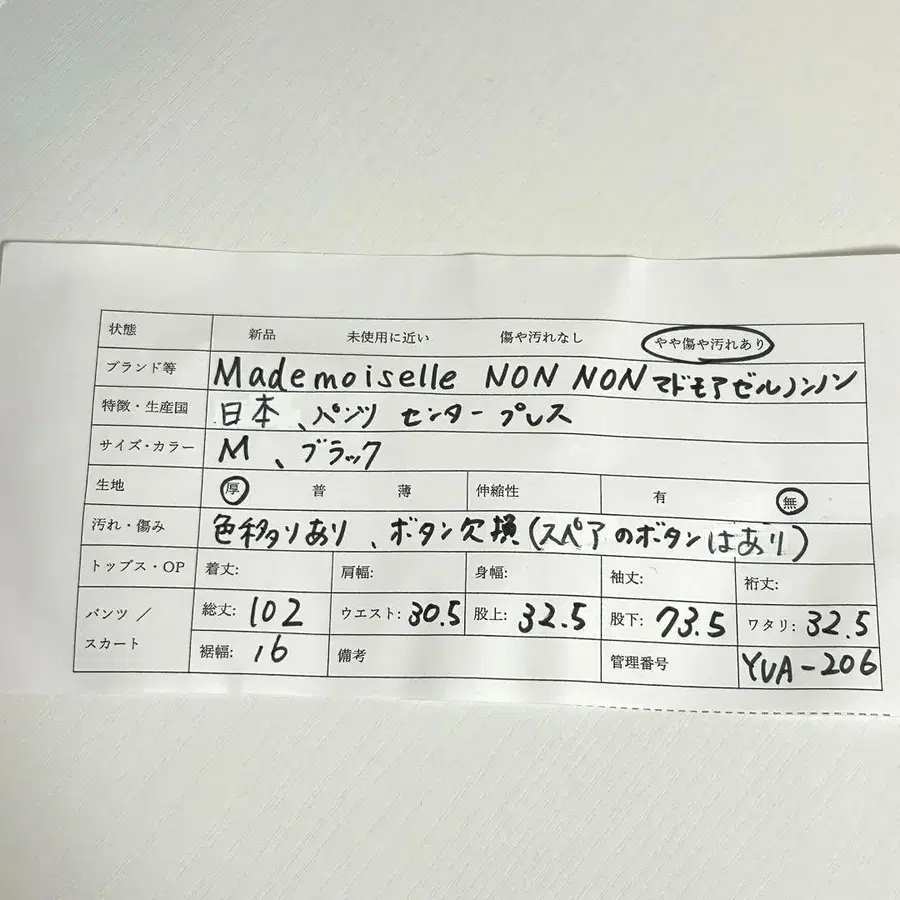 状態 新品 未使用に近い 傷や汚れなし やや傷や汚れあり
ブランド等 Mademoiselle NON NON マドモアゼルノンノン
特徴・生産国 日本、パンツ センタープレス
サイズ・カラー M、ブラック
生地 厚 普 薄 伸縮性 有 無
汚れ・傷み 色移りあり、ボタン欠損(スペアのボタンはあり)
トップス・OP 着丈: 肩幅: 身幅: 袖丈: 裄丈:
パンツ/スカート 総丈: 102 ウエスト: 30.5 股上: 32.5 股下: 73.5 ワタリ: 32.5
裾幅: 16 備考 管理番号 YUA-206